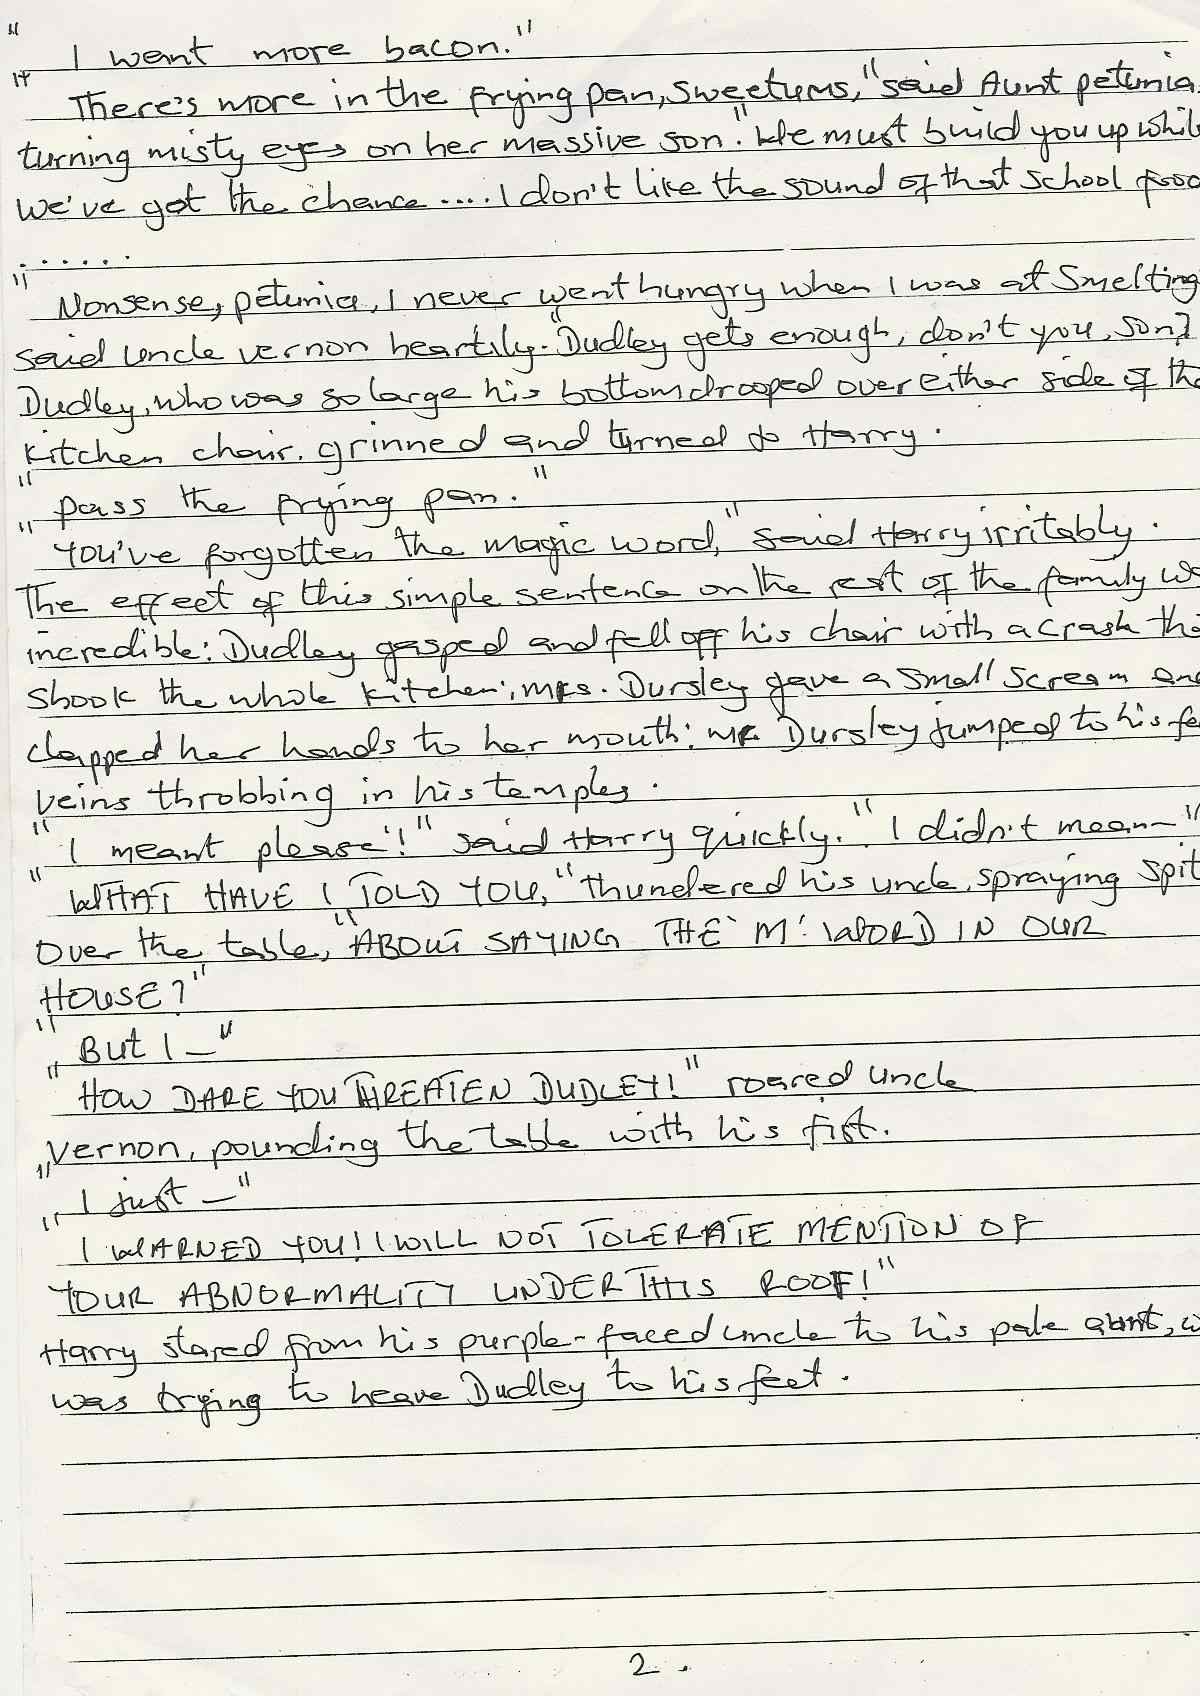 "I want more bacon."
"There's more in the frying pan, sweetums," said Aunt petunia,
turning misty eyes on her massive son. "We must build you up whil
we've got the chance .... I don't like the sound of that school foo
......
"Nonsense, petunia, I never went hungry when I was at Smelting
said uncle vernon heartily. "Dudley gets enough, don't you, son?
Dudley, who was so large his bottom drooped over either side of the
kitchen chair. grinned and turned to Harry.
"pass the frying pan."
"You've forgotten the magic word," said Harry irritably.
The effect of this simple sentence on the rest of the family w
incredible: Dudley gasped and fell off his chair with a crash th
shook the whole kitchen; mrs. Dursley gave a small scream an
clapped her hands to her mouth: mr Dursley jumped to his fe
veins throbbing in his temples.
"I meant 'please'!" said Harry quickly. "I didn't mean—"
"WHAT HAVE I TOLD YOU," thundered his uncle, spraying spit
over the table, "ABOUT SAYING THE 'M' WORD IN OUR
HOUSE?"
"But I —"
"HOW DARE YOU THREATEN DUDLEY!" roared uncle
vernon, pounding the table with his fist.
"I just —"
"I WARNED YOU! I WILL NOT TOLERATE MENTION OF
YOUR ABNORMALITY UNDER THIS ROOF!"
Harry stared from his purple-faced uncle to his pale aunt, w
was trying to heave Dudley to his feet.
2.